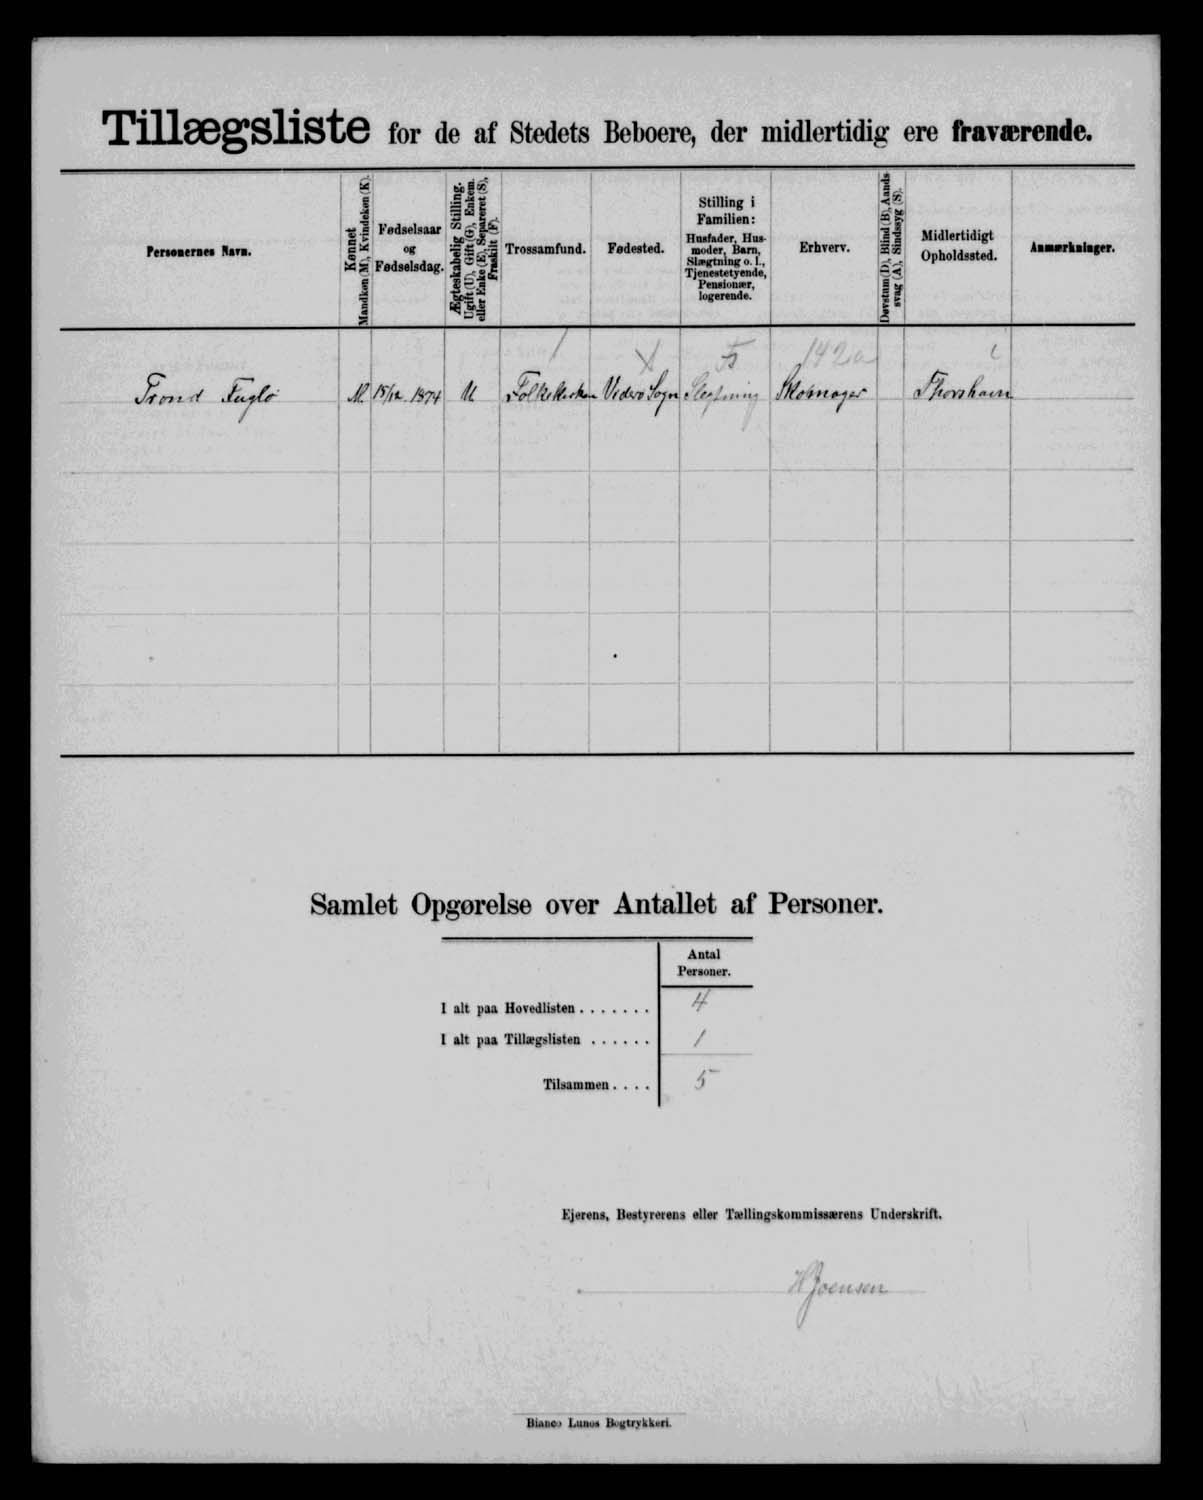 Tillægsliste for de af Stedets Beboere, der midlertidig ere fraværende.
Personernes Navn.
Kønnet
Mandkøn (M), Kvindekøn (K).
Fødselsaar
og
Fødselsdag.
Ægteskabelig Stilling.
Ugift (U), Gift (G), Enkem.
eller Enke (E), Separeret (S),
Fraskilt (F).
Trossamfund.
Fødested.
Stilling i
Familien:
Husfader, Hus-
moder, Barn,
Slægtning o. l.,
Tjenestetyende,
Pensionær,
logerende.
Erhverv.
Døvstum (D), Blind (B), Aands-
svag (A), Sindssyg (S).
Midlertidigt
Opholdssted.
Anmærkninger.
142a
Trond Fuglø M. 15/12 1874 U Folkekirken Viderø Sogn Slegtning Skomager Thorshavn
Samlet Opgørelse over Antallet af Personer.
Antal
Personer.
I alt paa Hovedlisten . . . . . . . 4
I alt paa Tillægslisten . . . . . . 1
Tilsammen . . . . 5
Ejerens, Bestyrerens eller Tællingskommissærens Underskrift.
HJoensen
Bianco Lunos Bogtrykkeri.